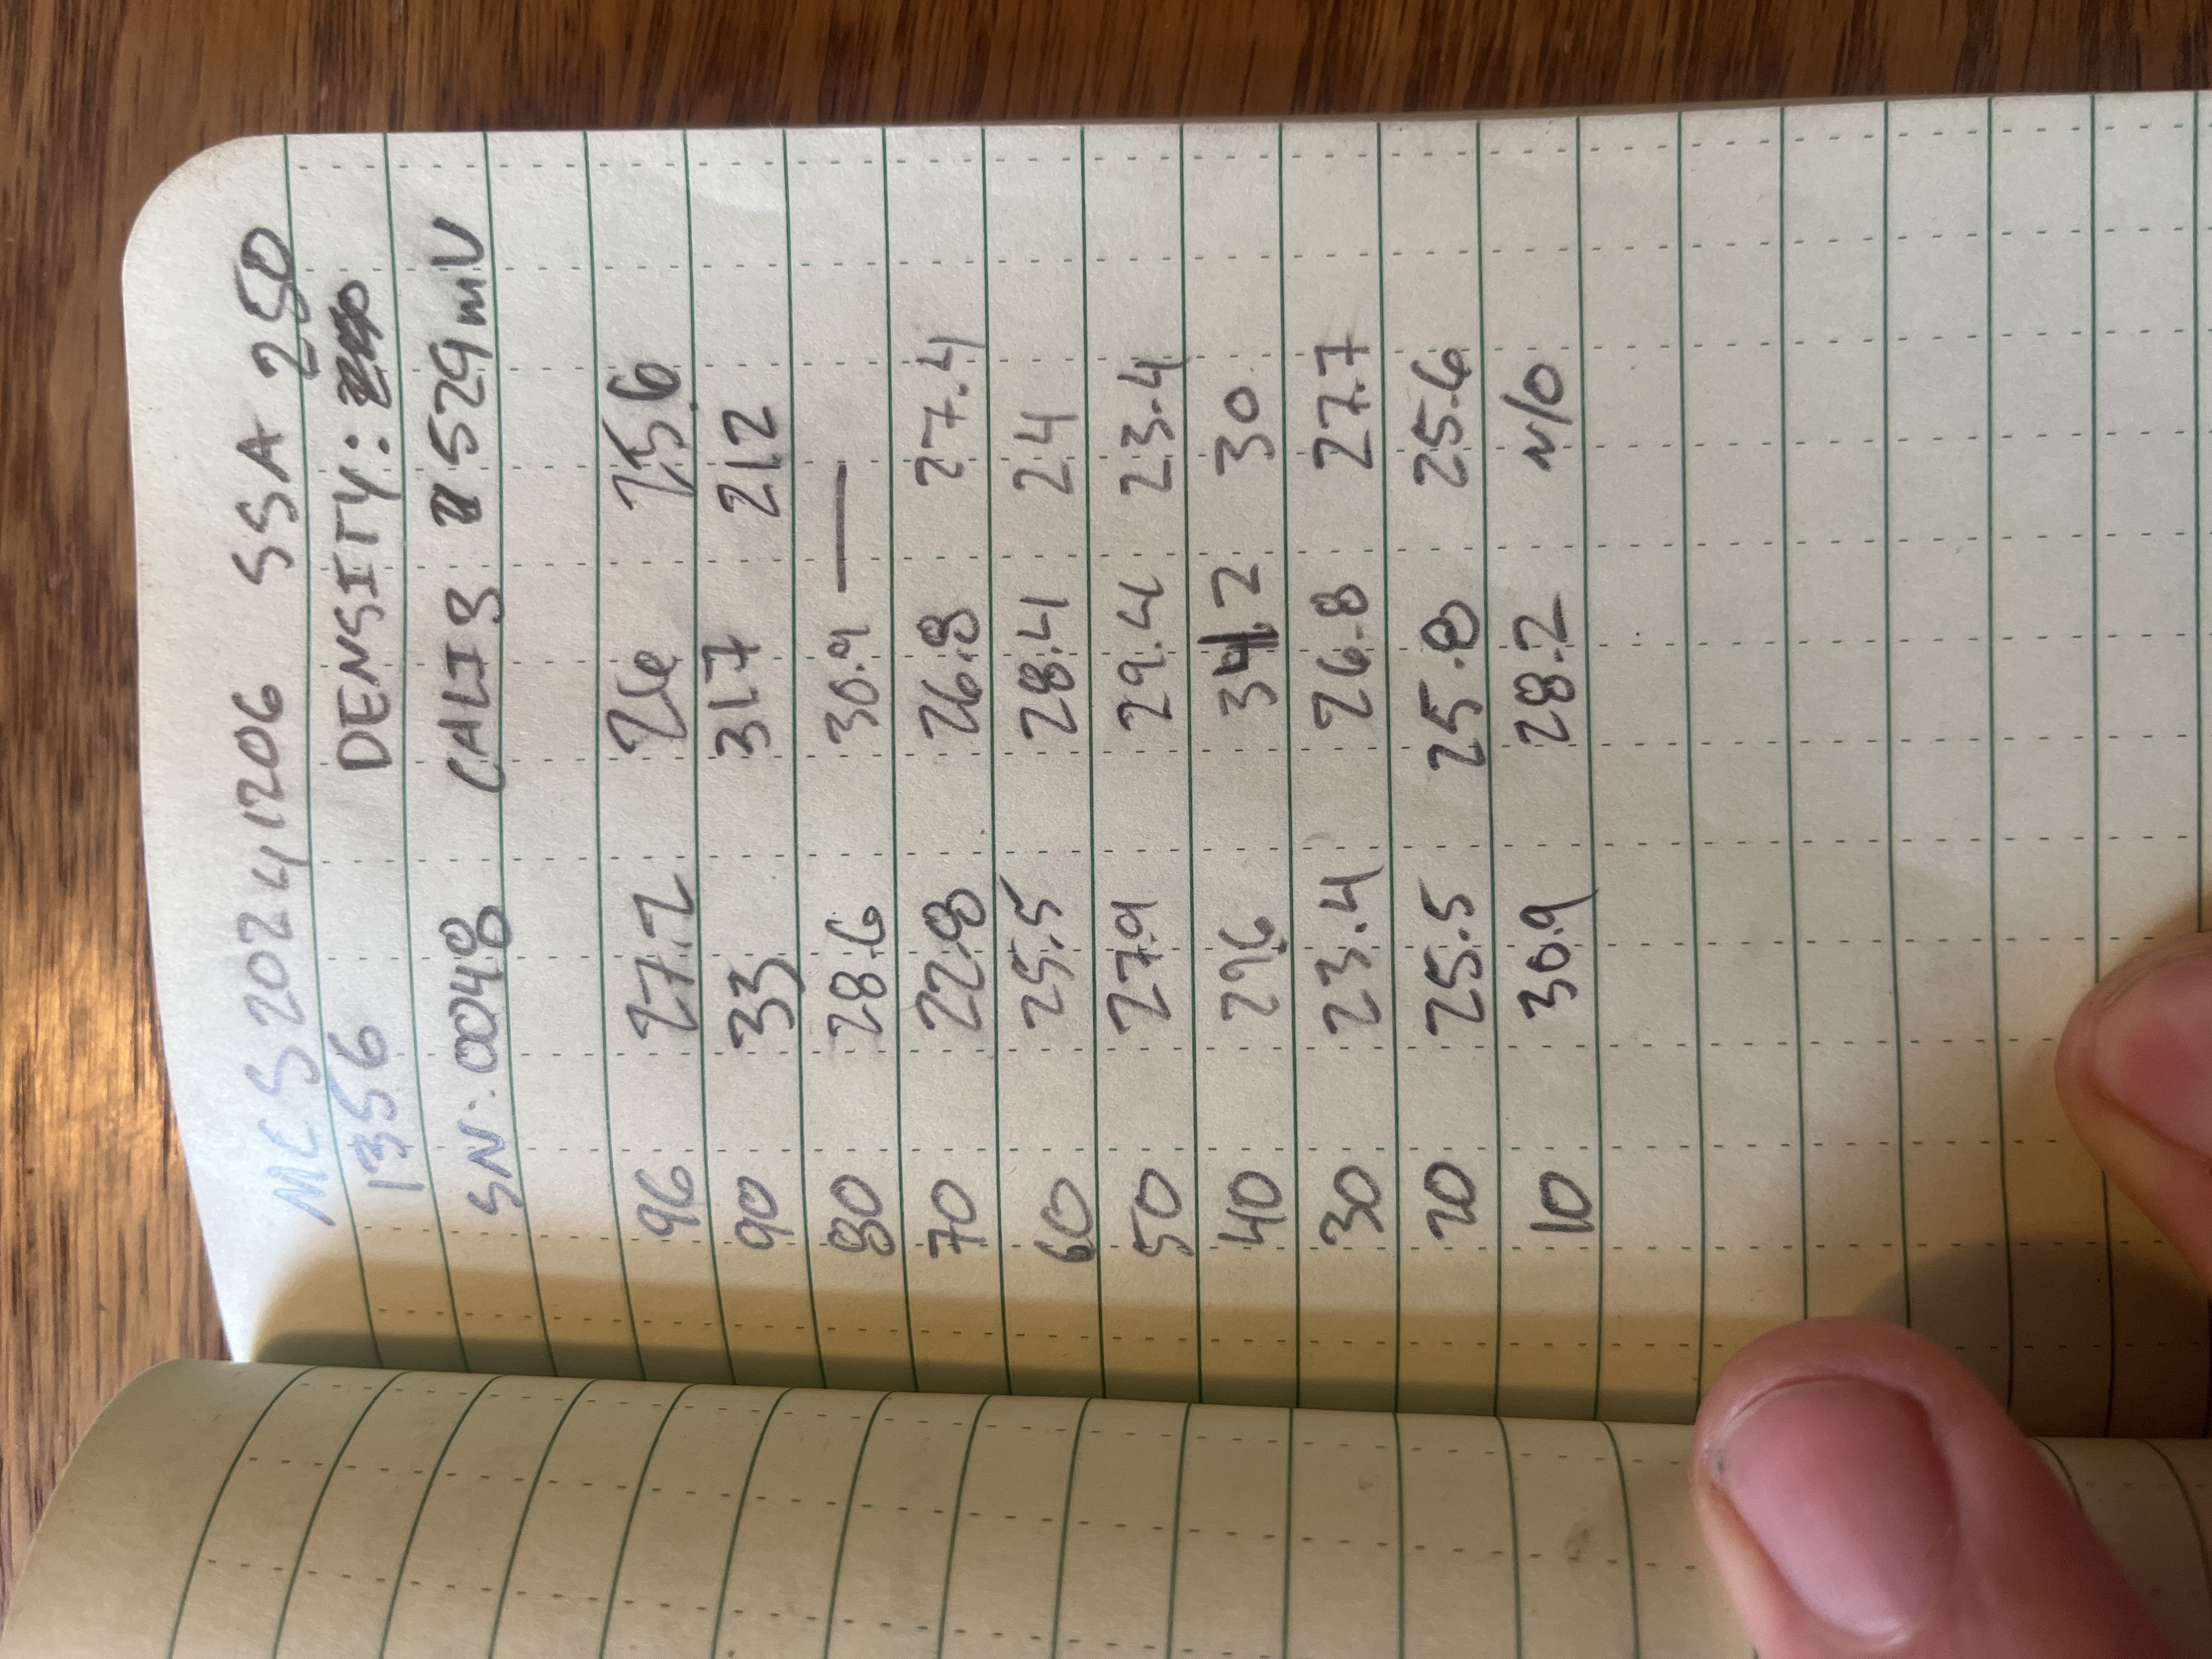 MCS 20241206 SSA 250
1356 DENSITY:
SN: 0048 CALIB 529mV
96 27.2 26 25.6
90 33 31.7 21.2
80 28.6 30.9 —
70 22.8 26.8 27.4
60 25.5 28.4 24
50 27.9 29.4 23.4
40 29.6 34.2 30
30 23.4 26.8 27.7
20 25.5 25.8 25.6
10 30.9 28.2 N/O